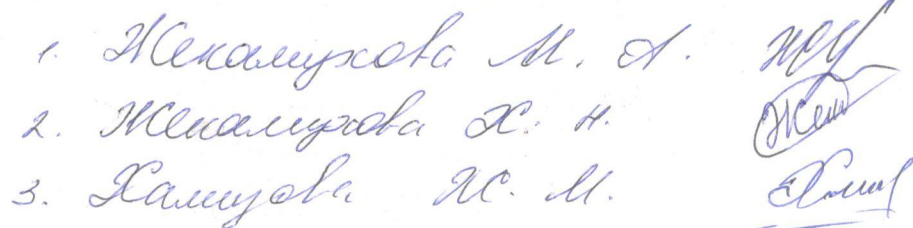 1. Жекамухова М. А.
2. Жекамухова Х. Н.
3. Хамизова Ж. М.